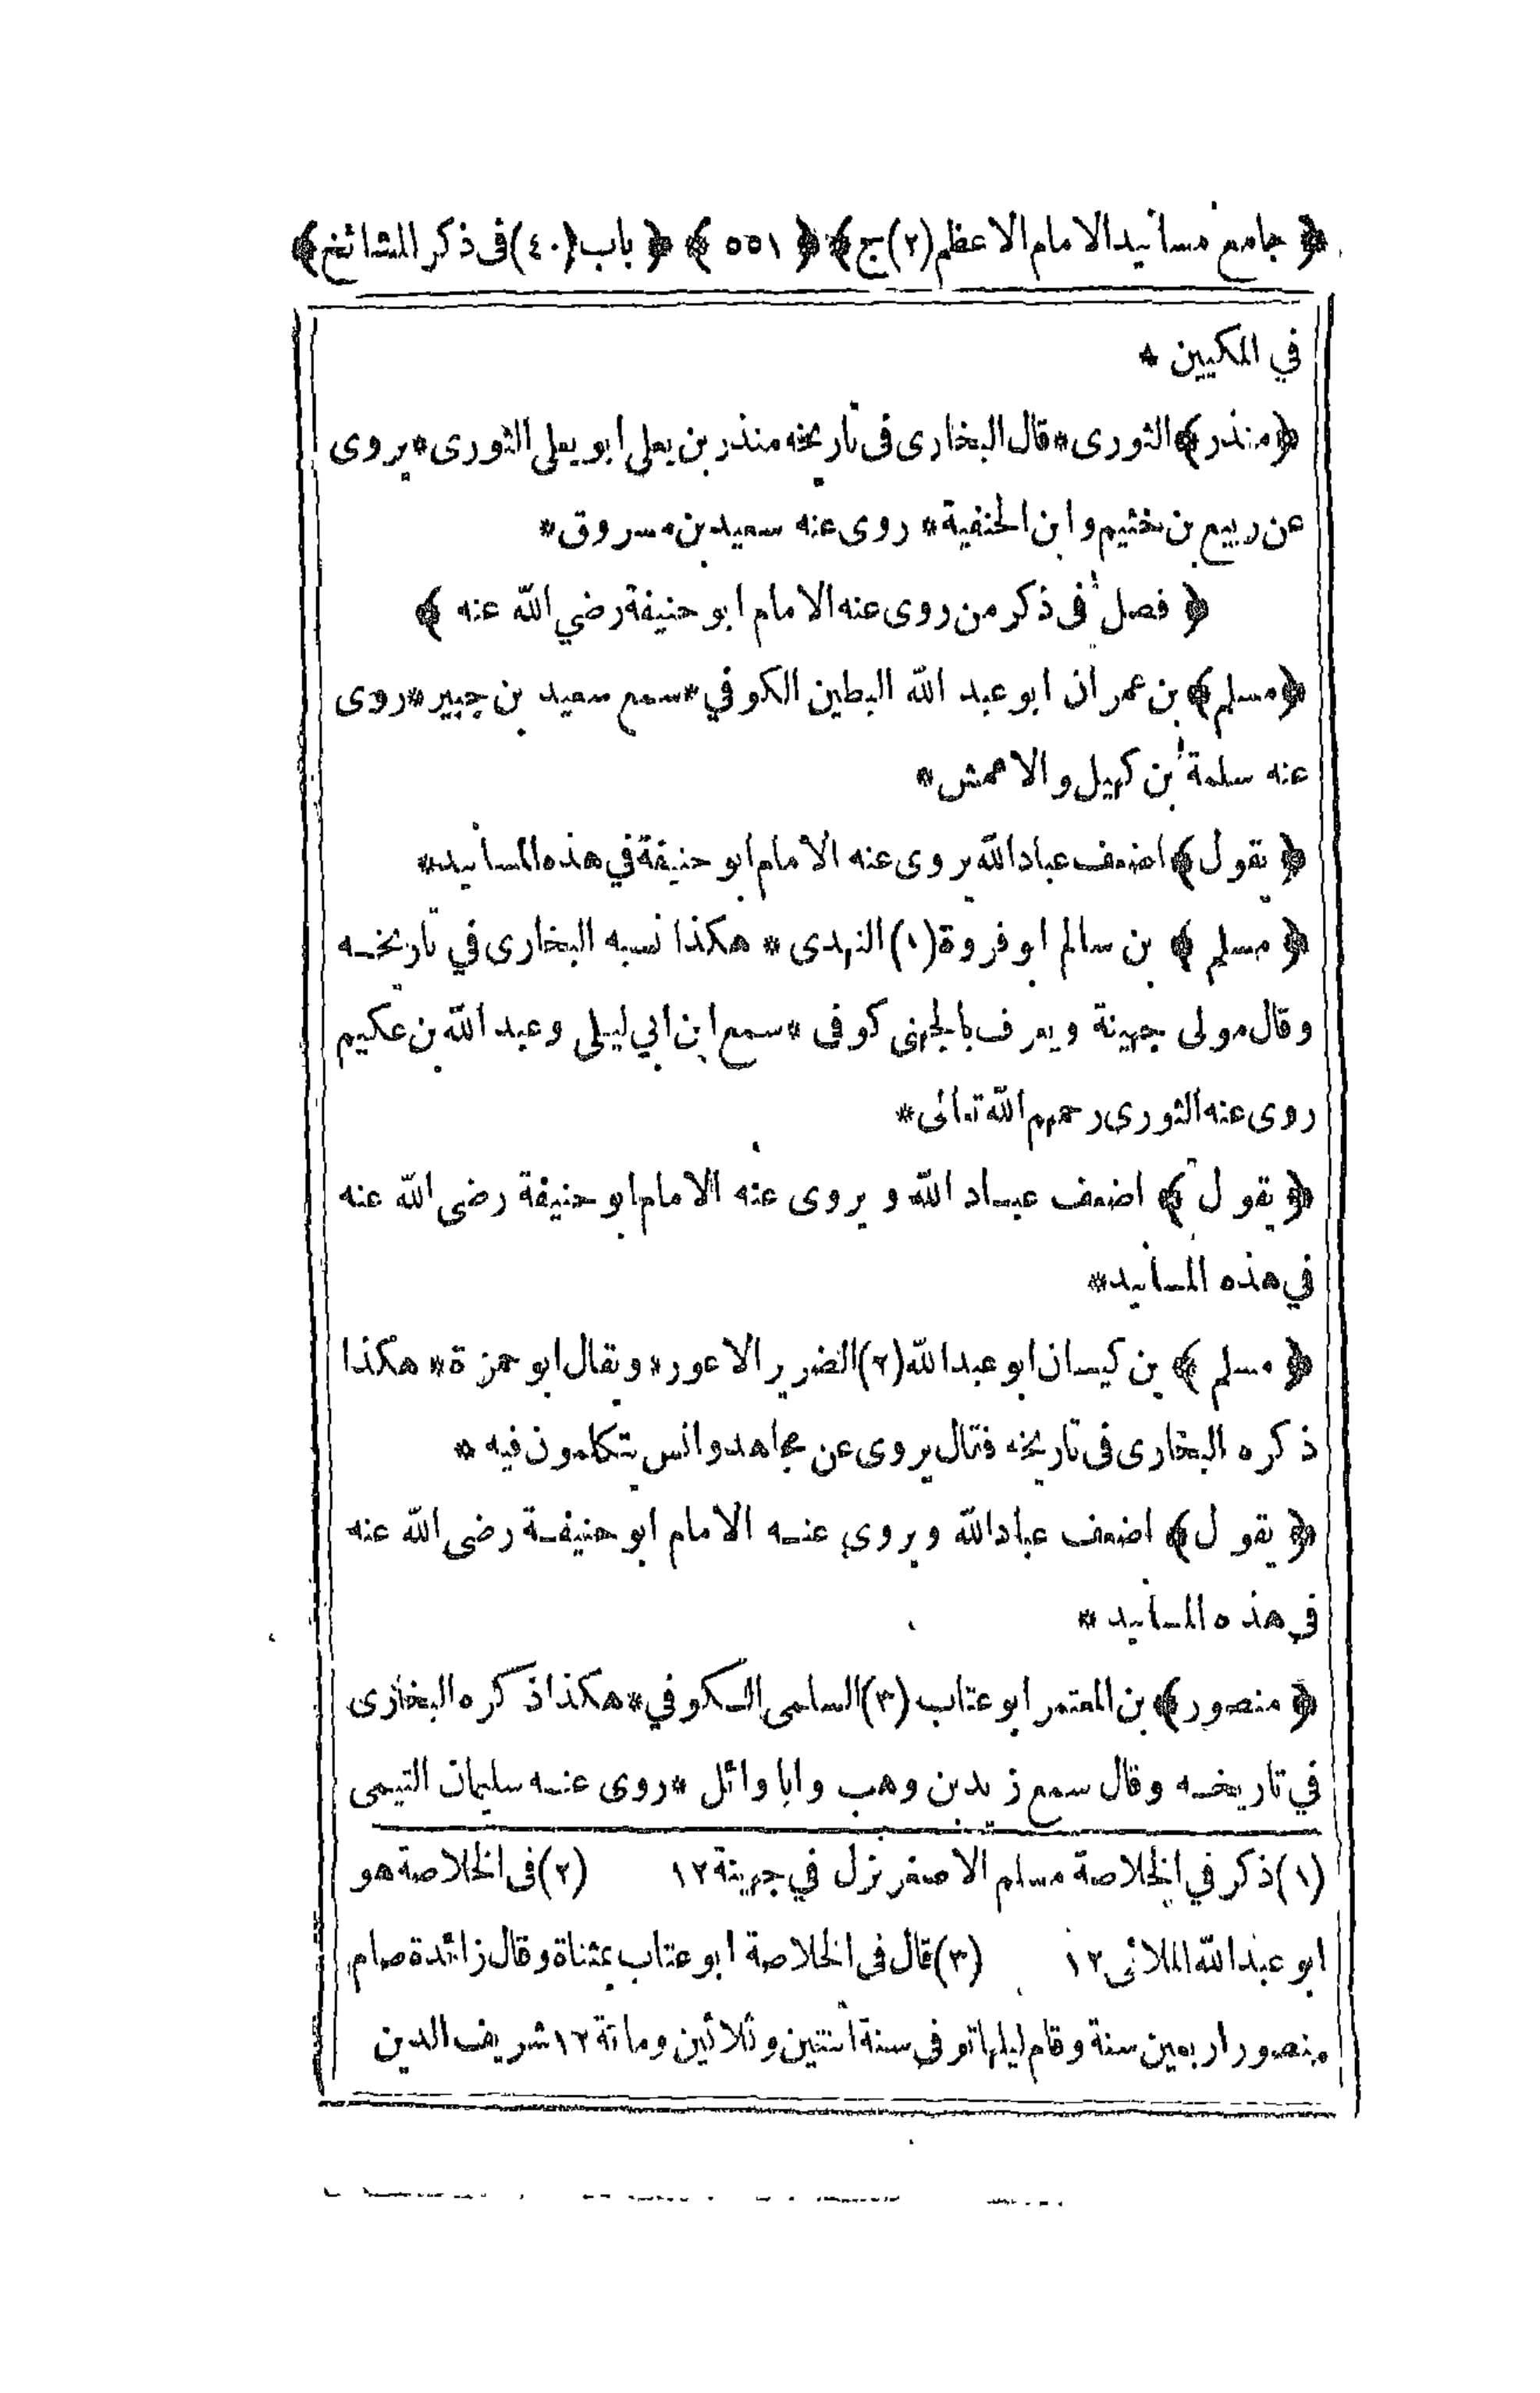 ﴿ جامع مسانيد الامام الاعظم (٢) ج ﴾ ﴿ ٥٥١ ﴾ ﴿ باب (٤٠) فى ذكر المشائخ ﴾
في المكيين *
﴿ منذر ﴾ الثورى * قال البخارى فى تاريخه منذر بن يعلى ابو يعلى الثورى * يروى
عن ربيع بن خثيم وابن الحنفية * روى عنه سعيد بن مسروق *
﴿ فصل فى ذكر من روى عنه الامام ابو حنيفة رضي الله عنه ﴾
﴿ مسلم ﴾ بن عمران ابو عبد الله البطين الكوفي * سمع سعيد بن جبير * روى
عنه سلمة بن كهيل والاعمش *
﴿ يقول ﴾ اضعف عباد الله يروى عنه الامام ابو حنيفة في هذه المسانيد *
﴿ مسلم ﴾ بن سالم ابو فروة (١) النهدى * هكذا نسبه البخارى في تاريخه
وقال مولى جهينة ويعرف بالجهنى كوفى * سمع ابن ابي ليلى وعبد الله بن عكيم
روى عنه الثورى رحمهم الله تعالى *
﴿ يقول ﴾ اضعف عباد الله و يروى عنه الامام ابو حنيفة رضى الله عنه
في هذه المسانيد *
﴿ مسلم ﴾ بن كيسان ابو عبد الله (٢) الضرير الاعور * ويقال ابو حمزة * هكذا
ذكره البخارى فى تاريخه فقال يروى عن مجاهد وانس يتكلمون فيه *
﴿ يقول ﴾ اضعف عباد الله ويروى عنه الامام ابو حنيفة رضى الله عنه
فى هذه المسانيد *
﴿ منصور ﴾ بن المعتمر ابو عتاب (٣) السلمى الكوفي * هكذا ذكره البخارى
في تاريخه وقال سمع زيد بن وهب وابا وائل * روى عنه سليمان التيمى
(١) ذكر في الخلاصة مسلم الاصغر نزل في جهينة ١٢ (٢) فى الخلاصة هو
ابو عبد الله الملائى ١٢ (٣) قال فى الخلاصة ابو عتاب بمثناة وقال زائدة صام
منصور اربعين سنة وقام ليلها توفى سنة اثنتين وثلاثين ومائة ١٢ شريف الدين